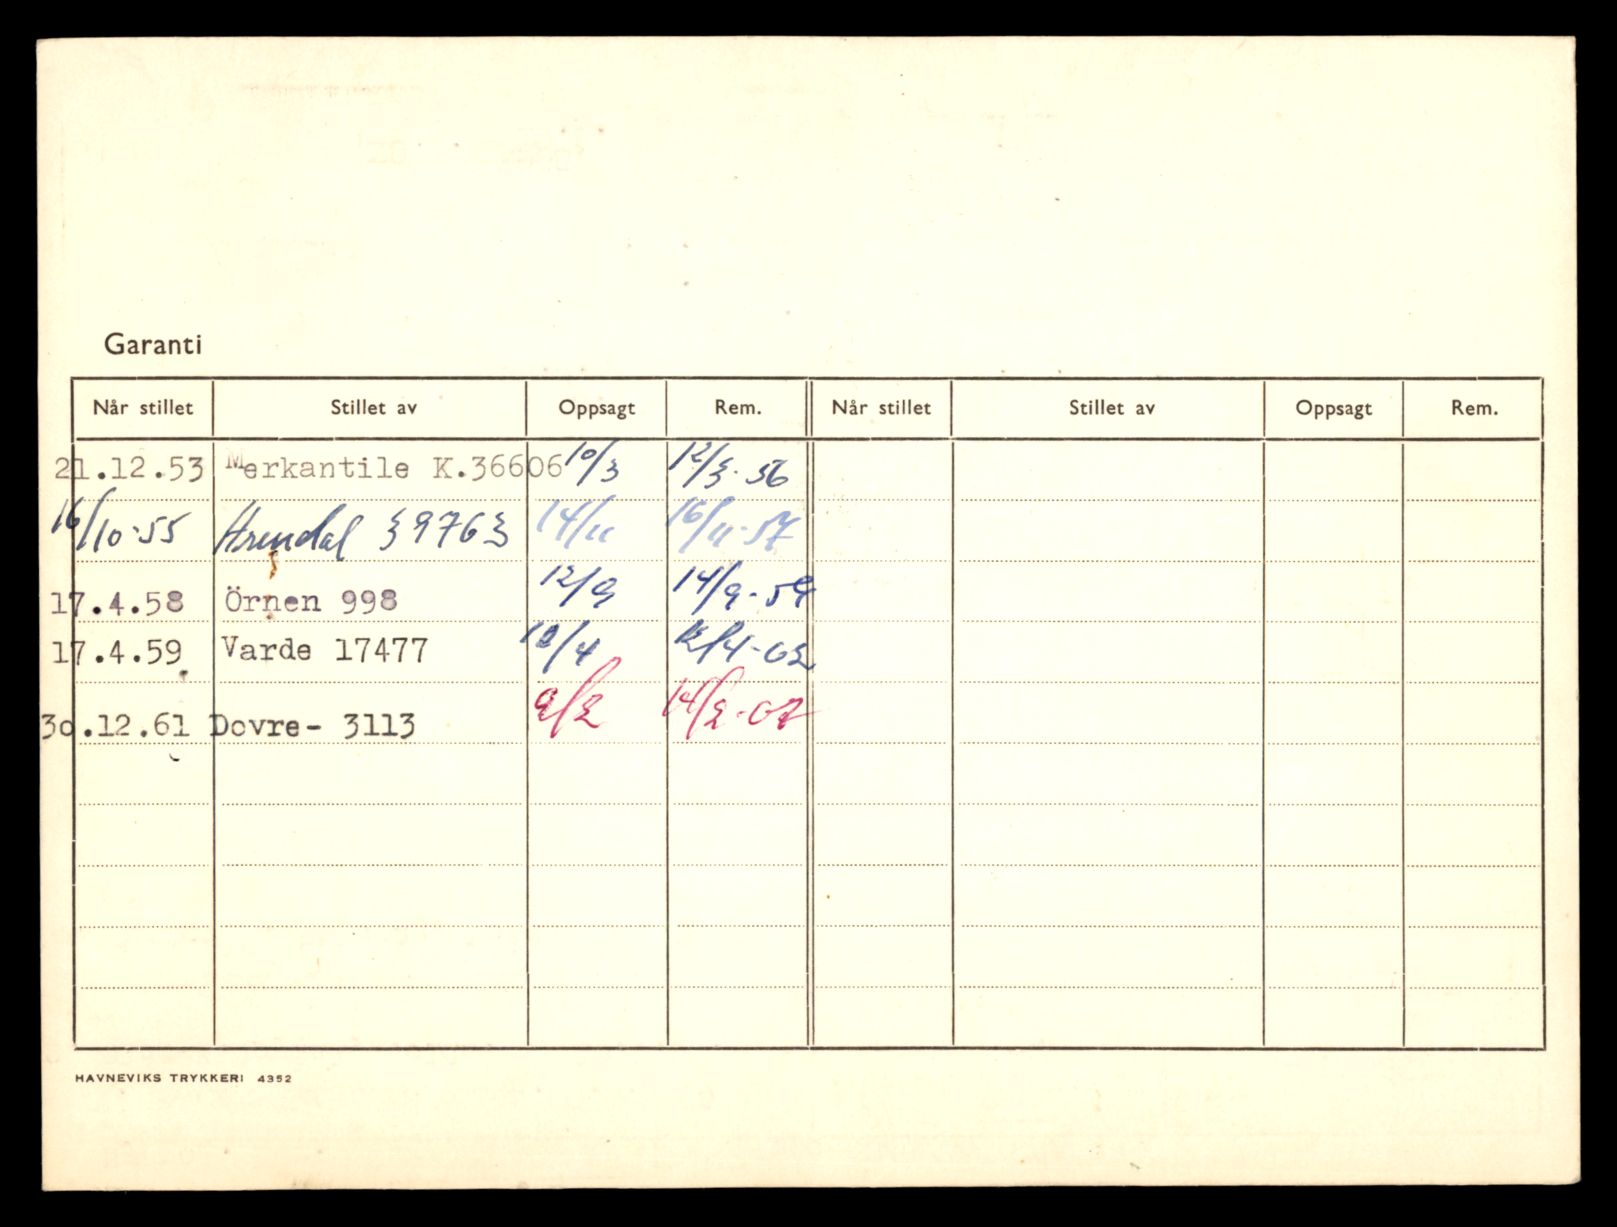 Garanti
Når stillet Stillet av Oppsagt Rem. Når stillet Stillet av Oppsagt Rem.
21.12.53 Merkantile K.36606 10/3 12/3-56
16/10-55 Arendal 39763 14/11 16/11-57
17.4.58 Örnen 998 12/9 14/9-59
17.4.59 Varde 17477 10/4 12/4-62
30.12.61 Dovre- 3113 9/2 14/2-67
HAVNEVIKS TRYKKERI 4352